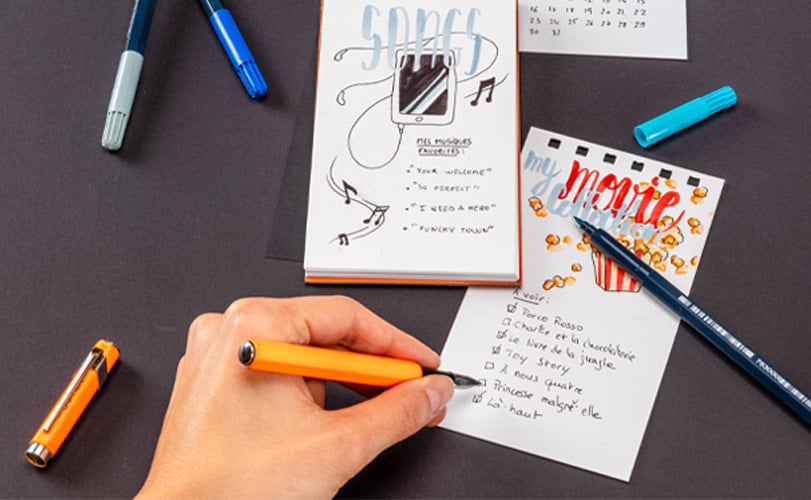 SONGS
MES MUSIQUES
FAVORITES :
"YOUR WELCOME"
"SO PERFECT"
"I NEED A HERO"
"FUNCKY TOWN"
16 17 18 19 20 21 22
23 24 25 26 27 28 29
30 31
my movie
collection
À voir :
Porco Rosso
Charlie et la chocolaterie
Le livre de la jungle
Toy Story
À nous quatre
Princesse malgré elle
Là-haut